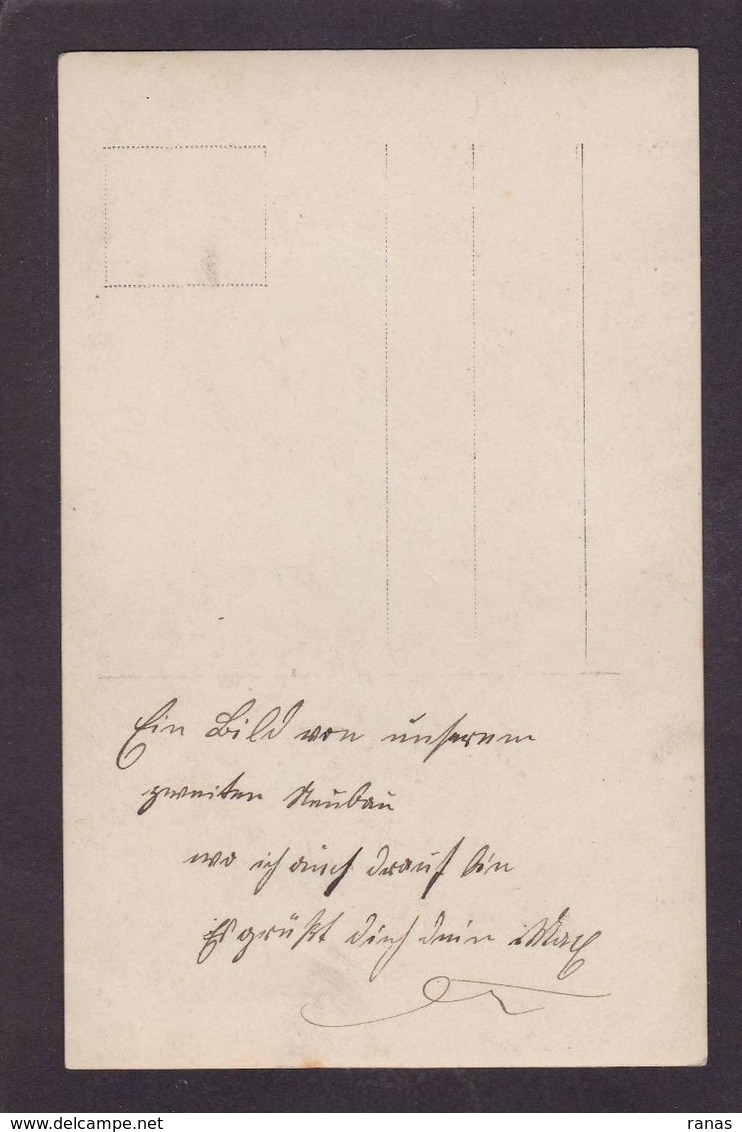 Ein Bild von unserem
zweiten Neubau
wo ich auch drauf bin
Es grüßt dich dein Max
ranas